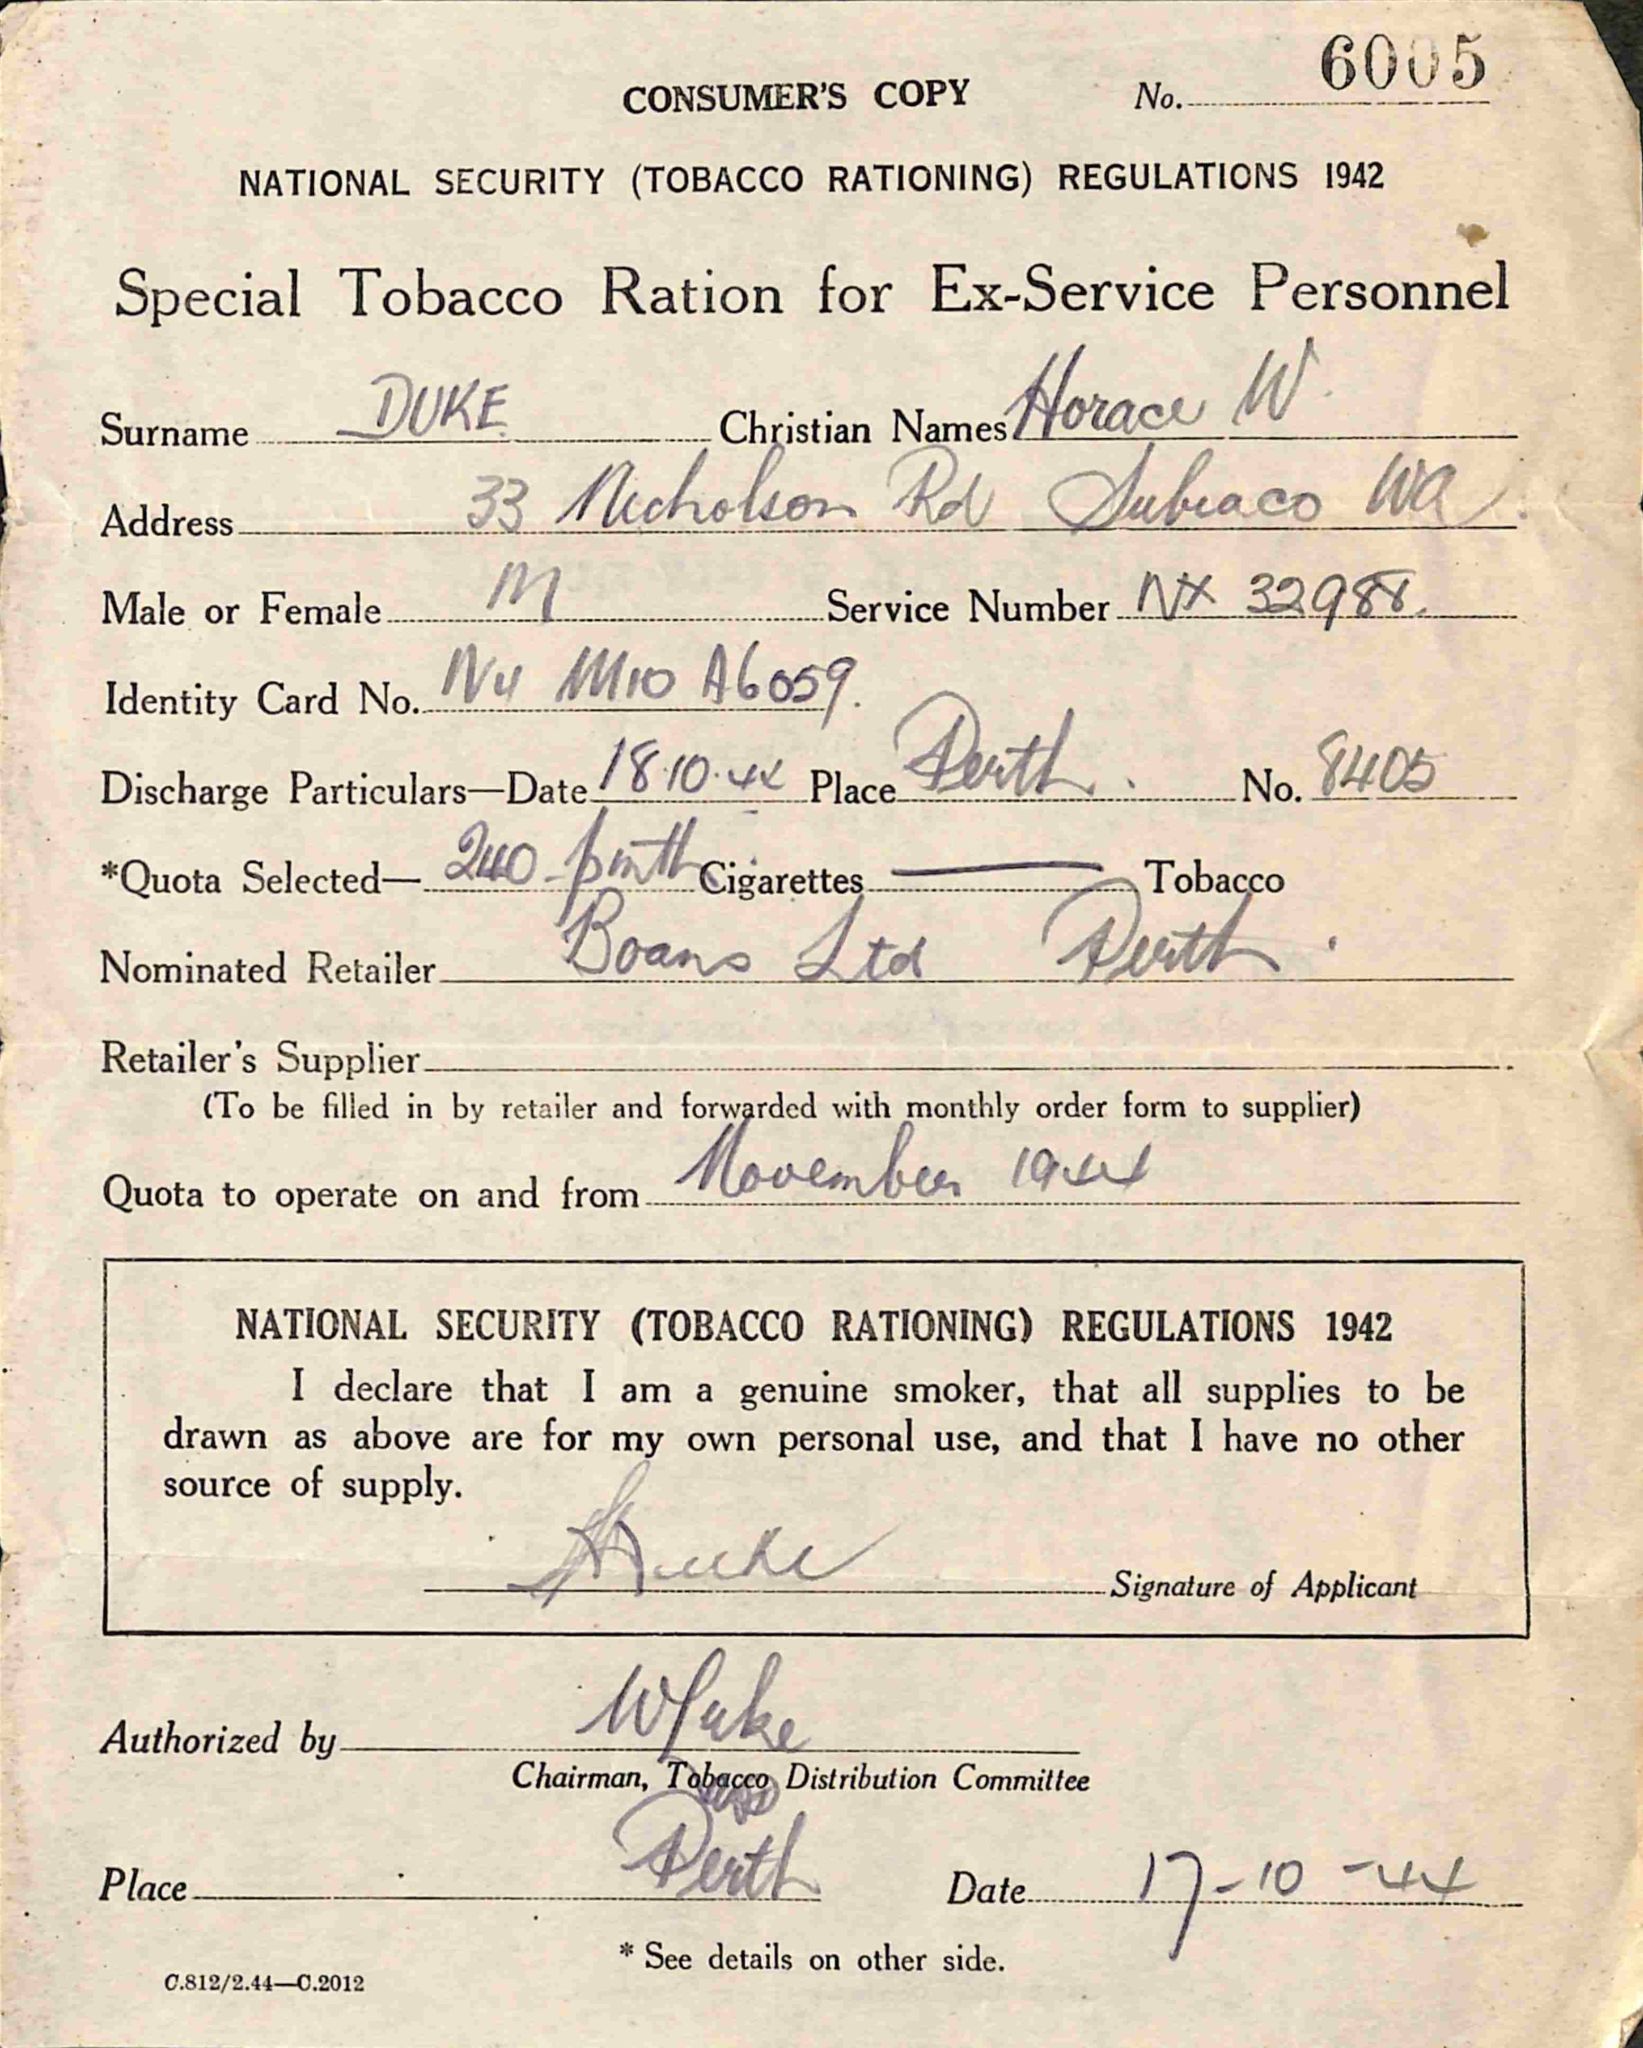 CONSUMER'S COPY No. 6005
NATIONAL SECURITY (TOBACCO RATIONING) REGULATIONS 1942
Special Tobacco Ration for Ex-Service Personnel
Surname DUKE. Christian Names Horace W.
Address 33 Nicholson Rd Subiaco WA.
Male or Female M Service Number NX 32988.
Identity Card No. M10 A6059.
Discharge Particulars—Date 18.10.44 Place Perth. No. 8405
*Quota Selected— 240 Cigarettes — Tobacco
Nominated Retailer Boans Ltd Perth.
Retailer's Supplier
(To be filled in by retailer and forwarded with monthly order form to supplier)
Quota to operate on and from November 1944
NATIONAL SECURITY (TOBACCO RATIONING) REGULATIONS 1942
I declare that I am a genuine smoker, that all supplies to be
drawn as above are for my own personal use, and that I have no other
source of supply.
Signature of Applicant
Authorized by
Chairman, Tobacco Distribution Committee
Place Perth Date 17-10-44
* See details on other side.
C.812/2.44—C.2012